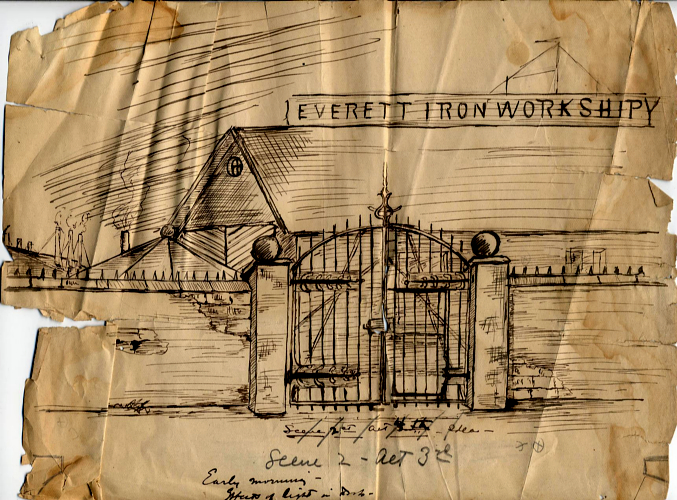 EVERETT IRON WORK SHIPY
Scene Act
Scene 2 - Act 3rd
Early morning -
Effects of light in